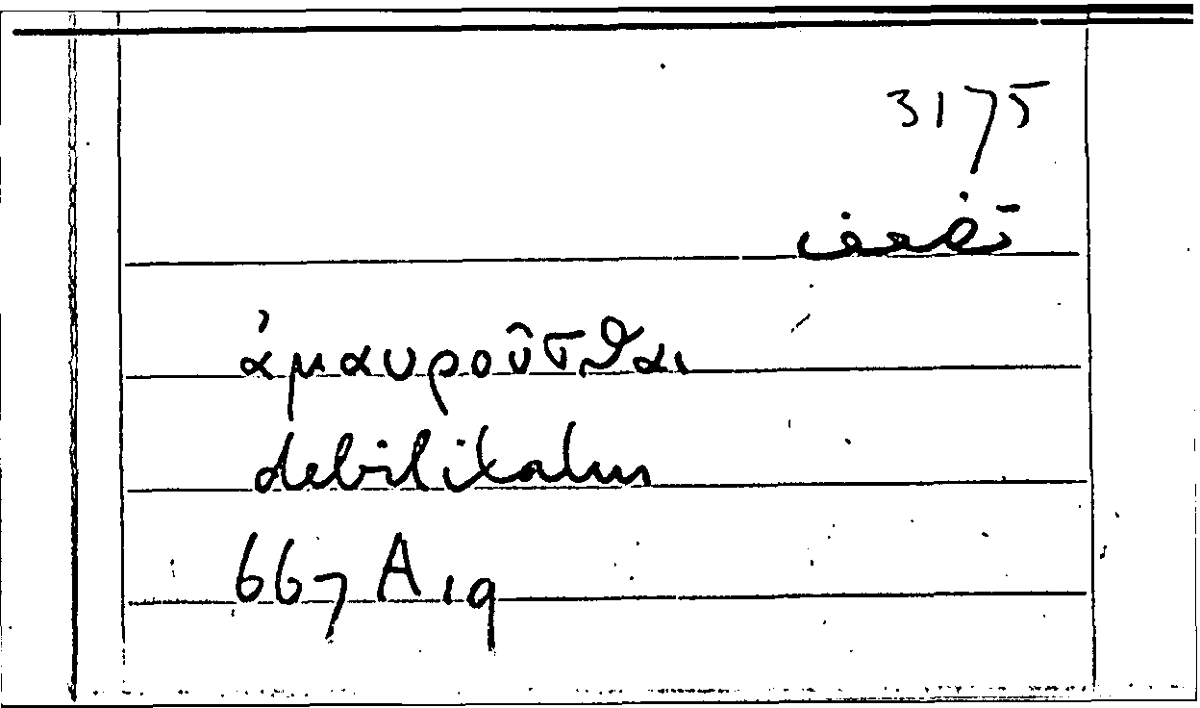 3175
تضعف
ἀμαυροῦσθαι
debilitatur
667 A 19